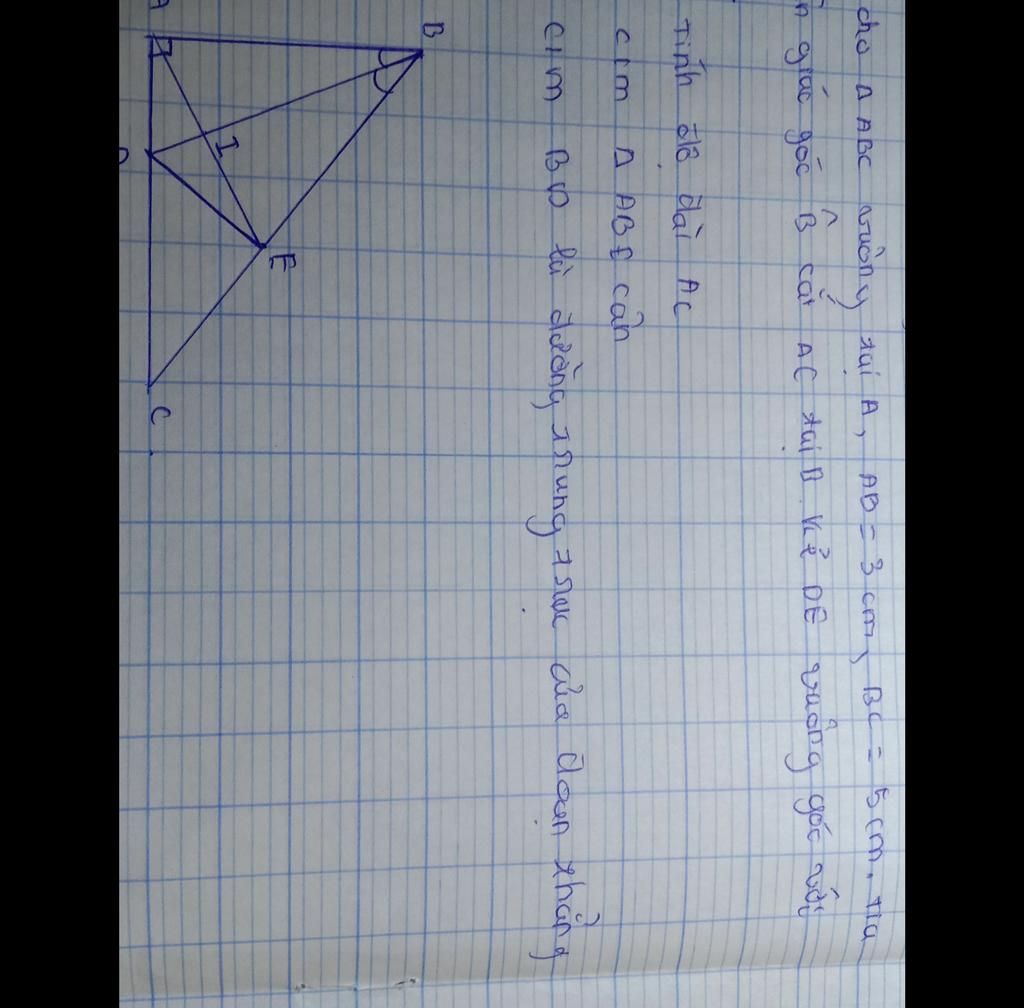 cho Δ ABC vuông tại A, AB = 3 cm, BC = 5 cm. tia
giác góc B cắt AC tại D. Kẻ DE vuông góc với
Tính độ dài AC
c/m Δ ABE cân
c/m BD là đường trung trực của đoạn thẳng
B
A
I
E
C